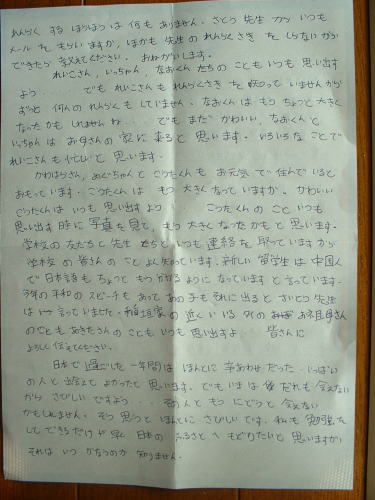 れんらく する ほうほうは 何も ありません。さとう 先生 から いつも
メール を もらい ますが、ほかも 先生の れんらく さき を しらない から
できたら 教えてください。おねがいします。
れいこさん、いっちゃん、なおくん たちの こともいつも 思い出す
よう... でも れいこさんも れんらくさき を いませんから
ずっと 何んの れんらくもしていません。なおくんは もう ちょっと 大きく
なった かもしれません ね... でも まだ かわいい、なおくんと
いっちゃんは お母さんの 家に 来ると 思います。いろいろな ことで
れいこさんも 忙しい と 思います。
かわはらさん、めぐちゃんと こうたくんも お元気 で 住んで いると
おもっています。こうたくんは もう 大きく なっていますか。かわいい
こうたくんは いつも 思い出すよ こうたくんの こと いつも
思い出す 時に 写真 を 見て、もう 大きく なったかもと 思います。
学校の 友だちと 先生 たちと いつも 連絡 を 取っていますから
学校の 皆さんの こと よく 知っています。新しい 留学生は 中国人
で 日本語も ちょっと もう 分かるようになっています と 言っています。
今年の 平和の スピーチも あって あの子も それに出ると さいとう 先生
は 言っていました。 の 近く いる お祖母さん
のことも あきたさんの ことも いつも 思い出すよ 皆さんに
よろしく 伝えてください。
日本で 過ごした 一年間は ほんとに 幸あわせ だった。いっぱい
の人と 出会えて よかったと 思います。でも いまは だれも 会えない
から さびしい ですよ... その人と もう にどっと 会えない
かもしれません。そう 思うと ほんとに さびしい です。私も 勉強を
して できるだけ 早く 日本の ふるさとへ もどりたいと 思いますが
それは いつ かなうのか 知りません。